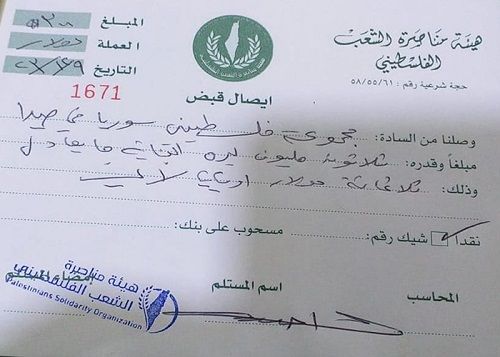 هيئة مناصرة الشعب
الفلسطيني
حجة شرعية رقم: ٥٨/٥٥/٦١
المبلغ
العملة دولار
التاريخ
1671
ايصال قبض
وصلنا من السادة: مجموعة فلسطينيي سوريا في صيدا
مبلغاً وقدره: ثلاثون مليون ليرة
وذلك: ثلاثمائة دولار
نقدا شيك رقم: مسحوب على بنك:
المحاسب
اسم المستلم
هيئة مناصرة
الشعب الفلسطيني
Palestinians Solidarity Organization